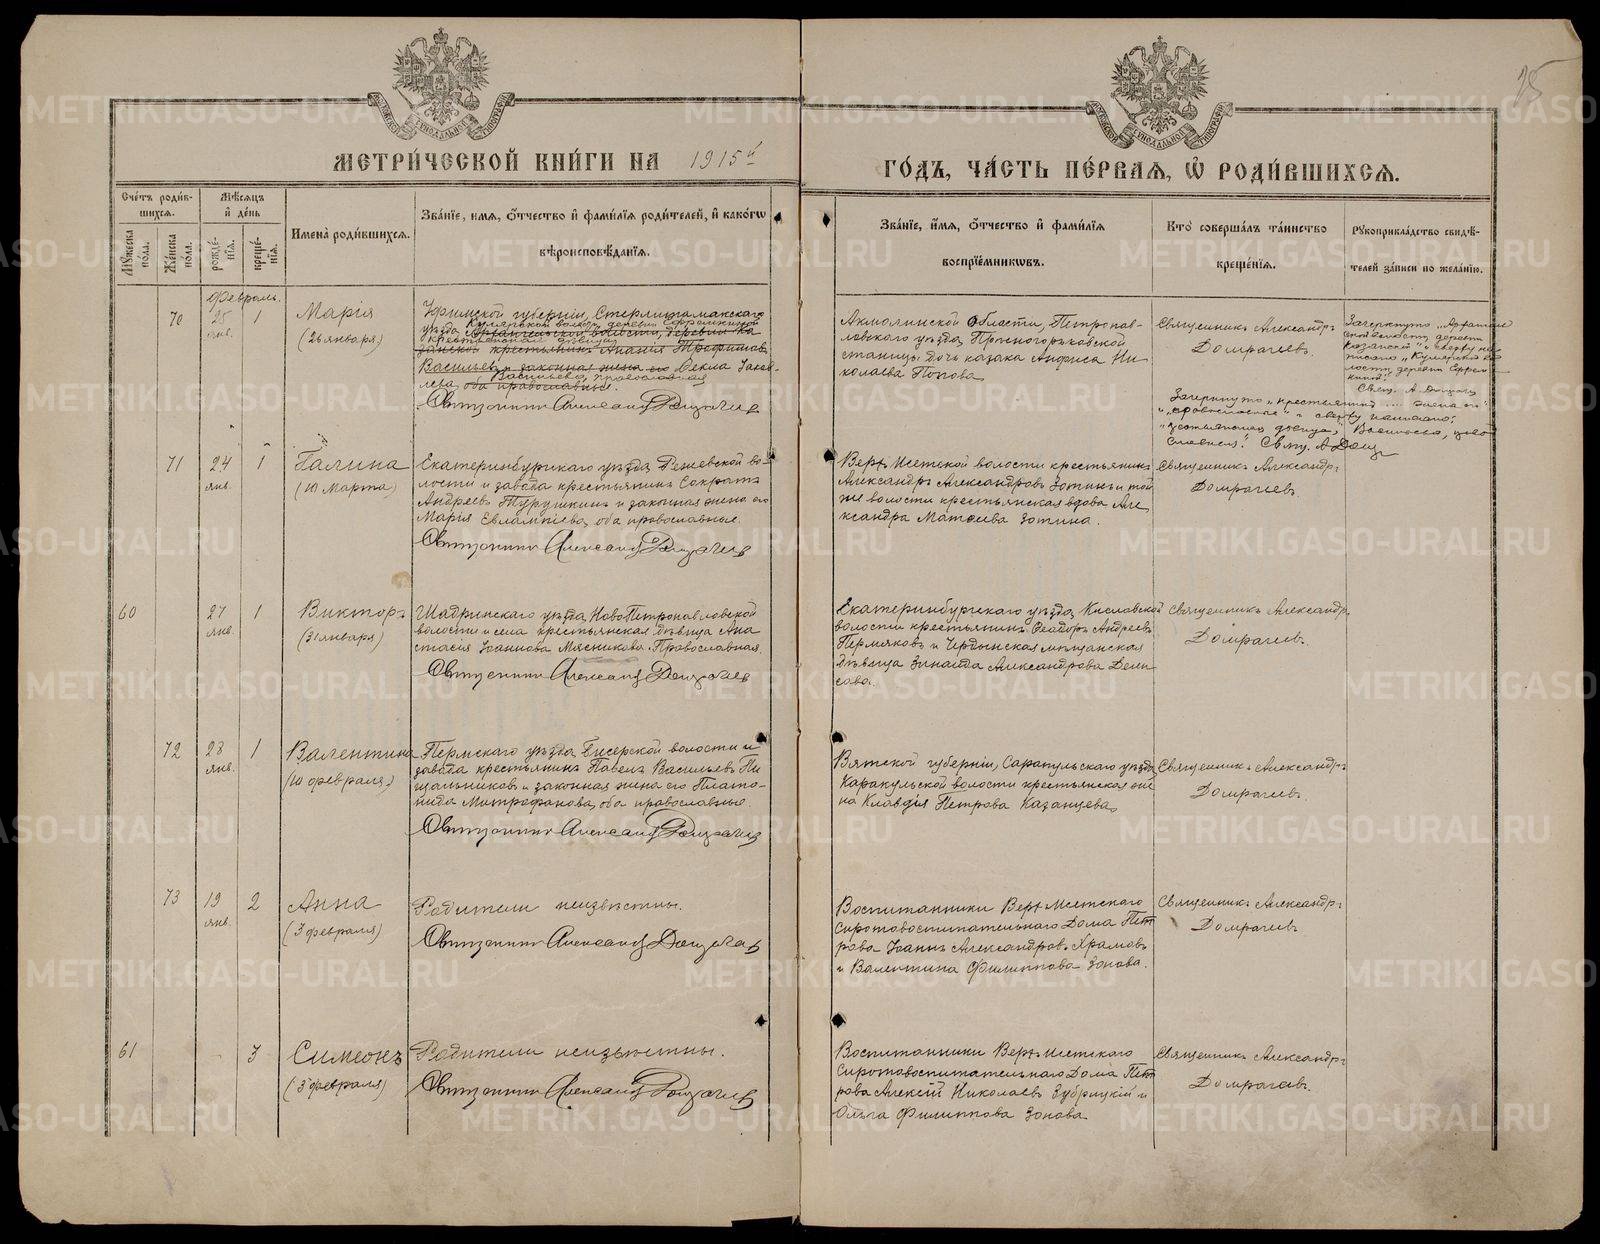 25
МЕТРИЧЕСКОЙ КНИГИ НА 1915й
ГОДЪ, ЧАСТЬ ПЕРВАЯ, Ѡ РОДИВШИХСЯ.
Счетъ родив-
шихся.
Мужеска пола.
Женска пола.
Мѣсяцъ
и день
рожде-
нія.
креще-
нія.
Имена родившихся.
Званіе, имя, отчество и фамилія родителей, и какогѡ
вѣроисповѣданія.
Званіе, имя, отчество и фамилія
воспріемникѡвъ.
Кто совершалъ таинство
крещенія.
Рукоприкладство свидѣ-
телей записи по желанію.
Февраль.
70 25 янв. 1
Марія
(26 января)
Уфимской губерніи, Стерлитамакскаго
уѣзда
крестьянская дѣвица
Васильева законная жена его Ѳекла Іаков-
лева
Васильева, православная
оба православные.
Священникъ Александръ Домрачевъ
Акмолинской области, Петропав-
ловскаго уѣзда, Прѣсногорьковской
станицы дочь казака Анфиса Ни-
колаева Попова
Священникъ Александръ
Домрачевъ.
Зачеркнуто
Свящ. А. Домрач
71 24 янв. 1
Галина
(10 Марта)
Екатеринбургскаго уѣзда, Режевской во-
лости и завода крестьянинъ Сократъ
Андреевъ Турушкинъ и законная жена его
Марія Евлампіева, оба православные.
Священникъ Александръ Домрачевъ
Верх-Исетской волости крестьянинъ
Александръ Александровъ Зотинъ и той
же волости крестьянская вдова Але-
ксандра Матѳеева Зотина.
Священникъ Александръ
Домрачевъ.
60 27 янв. 1
Викторъ
(31 января)
Шадринскаго уѣзда, НовоПетропавловской
волости и села крестьянская дѣвица Ана
стасія Іоаннова Мясникова. Православная.
Священникъ Александръ Домрачевъ
Екатеринбургскаго уѣзда, Кисловской
волости крестьянинъ Ѳеодоръ Андреевъ
Пермяковъ и Чердынская мѣщанская
дѣвица Зинаида Александрова Дени-
сова.
Священникъ Александръ
Домрачевъ.
72 28 янв. 1
Валентина
(10 февраля)
Пермскаго уѣзда, Бисерской волости и
завода крестьянинъ Павелъ Васильевъ Пи
щальниковъ и законная жена его Плато-
нида Митрофанова, оба православные.
Священникъ Александръ Домрачевъ
Вятской губерніи, Сарапульскаго уѣзда,
Каракульской волости крестьянская же
на Клавдія Петрова Казанцева
Священникъ Александръ
Домрачевъ.
73 19 янв. 2
Анна
(3 февраля)
Родители неизвѣстны.
Священникъ Александръ Домрачевъ
Воспитанники Верх-Исетскаго
Сиротовоспитательнаго Дома Пет
рова Іоаннъ Александровъ Храмовъ
и Валентина Филиппова Зонова.
Священникъ Александръ
Домрачевъ.
61 3
Симеонъ
(3 февраля)
Родители неизвѣстны.
Священникъ Александръ Домрачевъ
Воспитанники Верх-Исетскаго
Сиротовоспитательнаго Дома Пет
рова Алексій Николаевъ Зубрицкій и
Ольга Филиппова Зонова
Священникъ Александръ
Домрачевъ.
METRIKI.GASO-URAL.RU